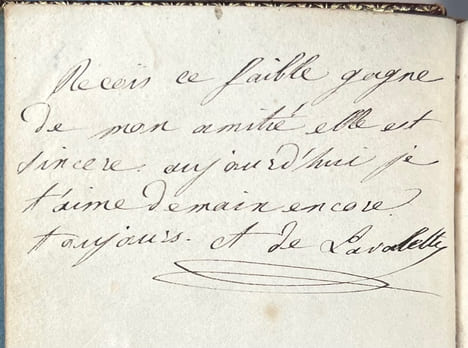 Recois ce faible gagne
de mon amitié elle est
sincere. aujourd'hui je
t'aime demain encore.
toujours. ct de Lavalette